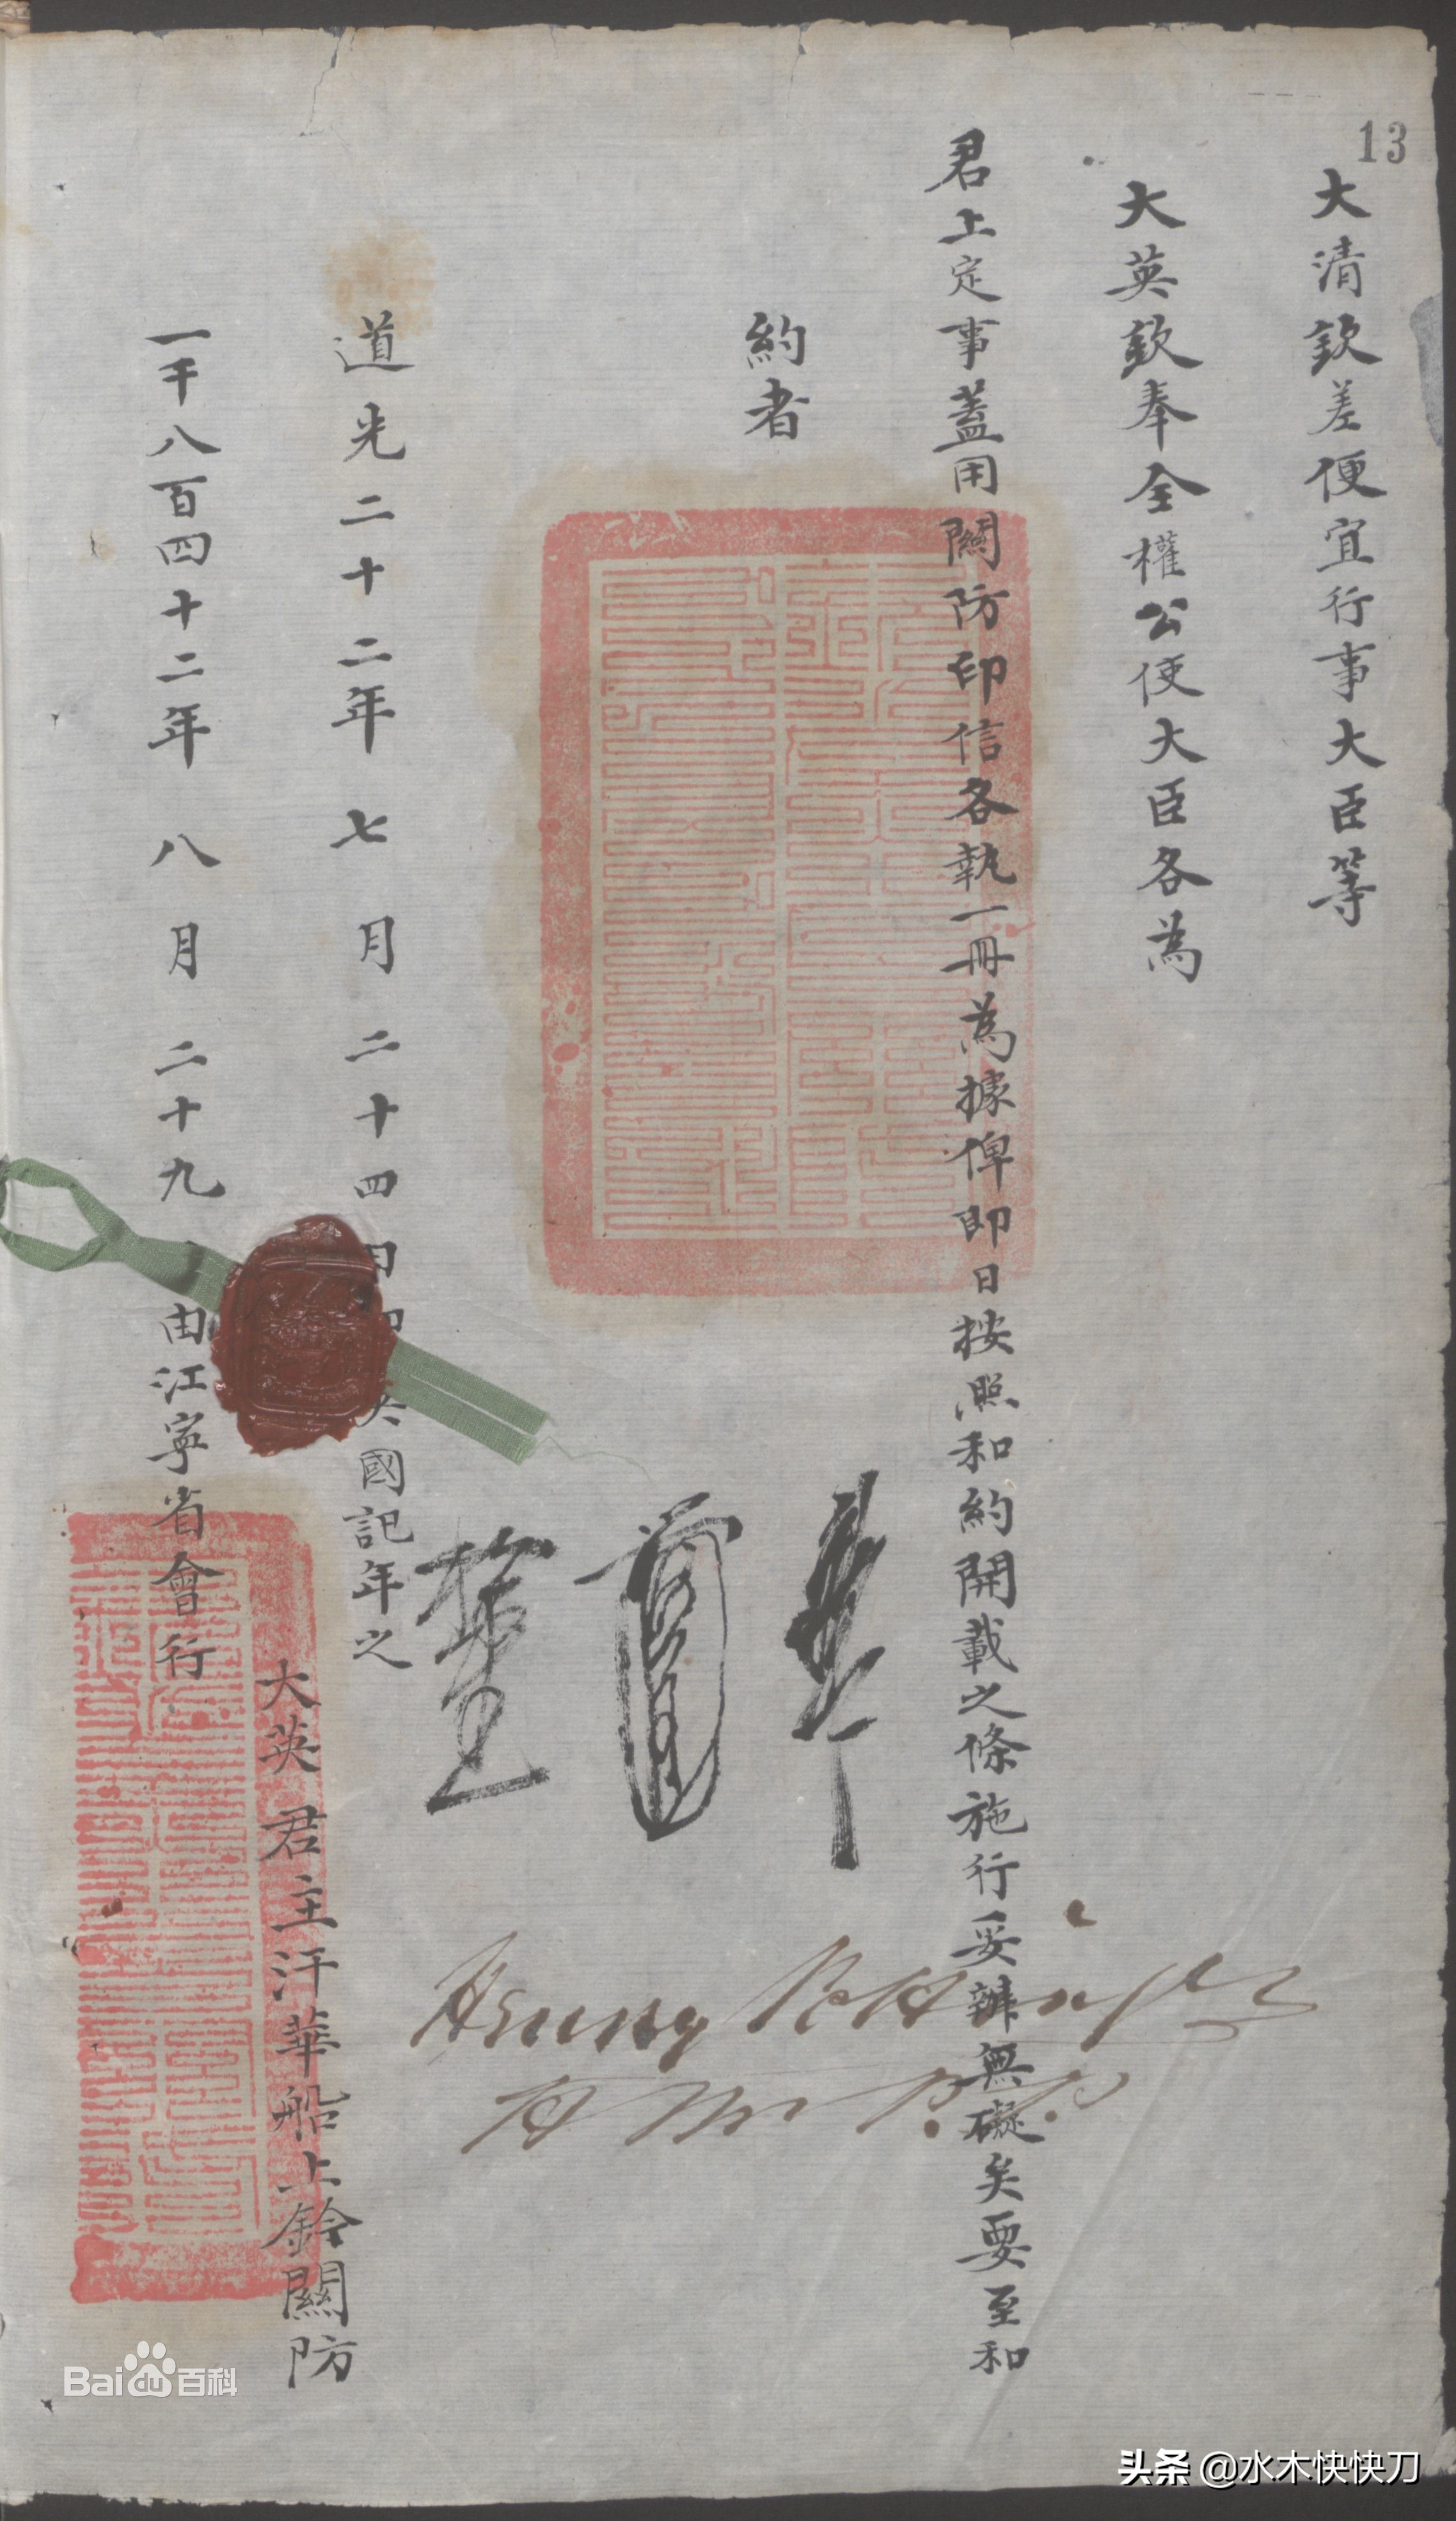 13
大清欽差便宜行事大臣等
大英欽奉全權公使大臣各為
君上定事蓋用關防印信各執一冊為據俾即日按照和約開載之條施行妥辦無礙矣要至和
約者
道光二十二年七月二十四日 英國記年之
一千八百四十二年八月二十九 由江寧省會行
大英君主汗華船上鈐關防
Henry Pottinger
Bai 百科
头条 @水木快快刀